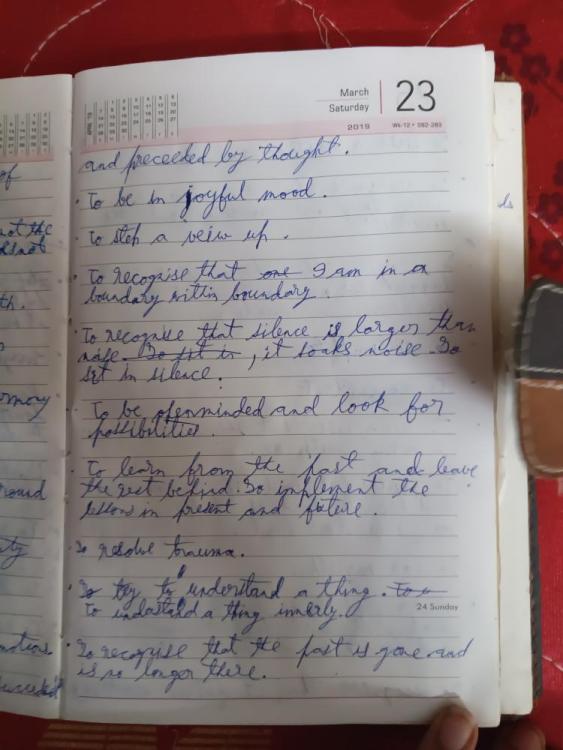 March
Saturday
23
2019
Wk-12 • 082-283
and preceeded by thought.
· To be in joyful mood.
· To step a veiw up.
· To recognise that one I am in a
boundary within boundary.
· To recognise that silence is larger than
noise. So sit in, it soaks noise. So
sit in silence.
· To be openminded and look for
possibilities.
· To learn from the past and leave
the rest behind. To implement the
lessons in present and future.
· To resolve trauma.
· To try to understand a thing. To u
To understand a thing innerly.
24 Sunday
· To recognise that the past is gone and
is no longer there.